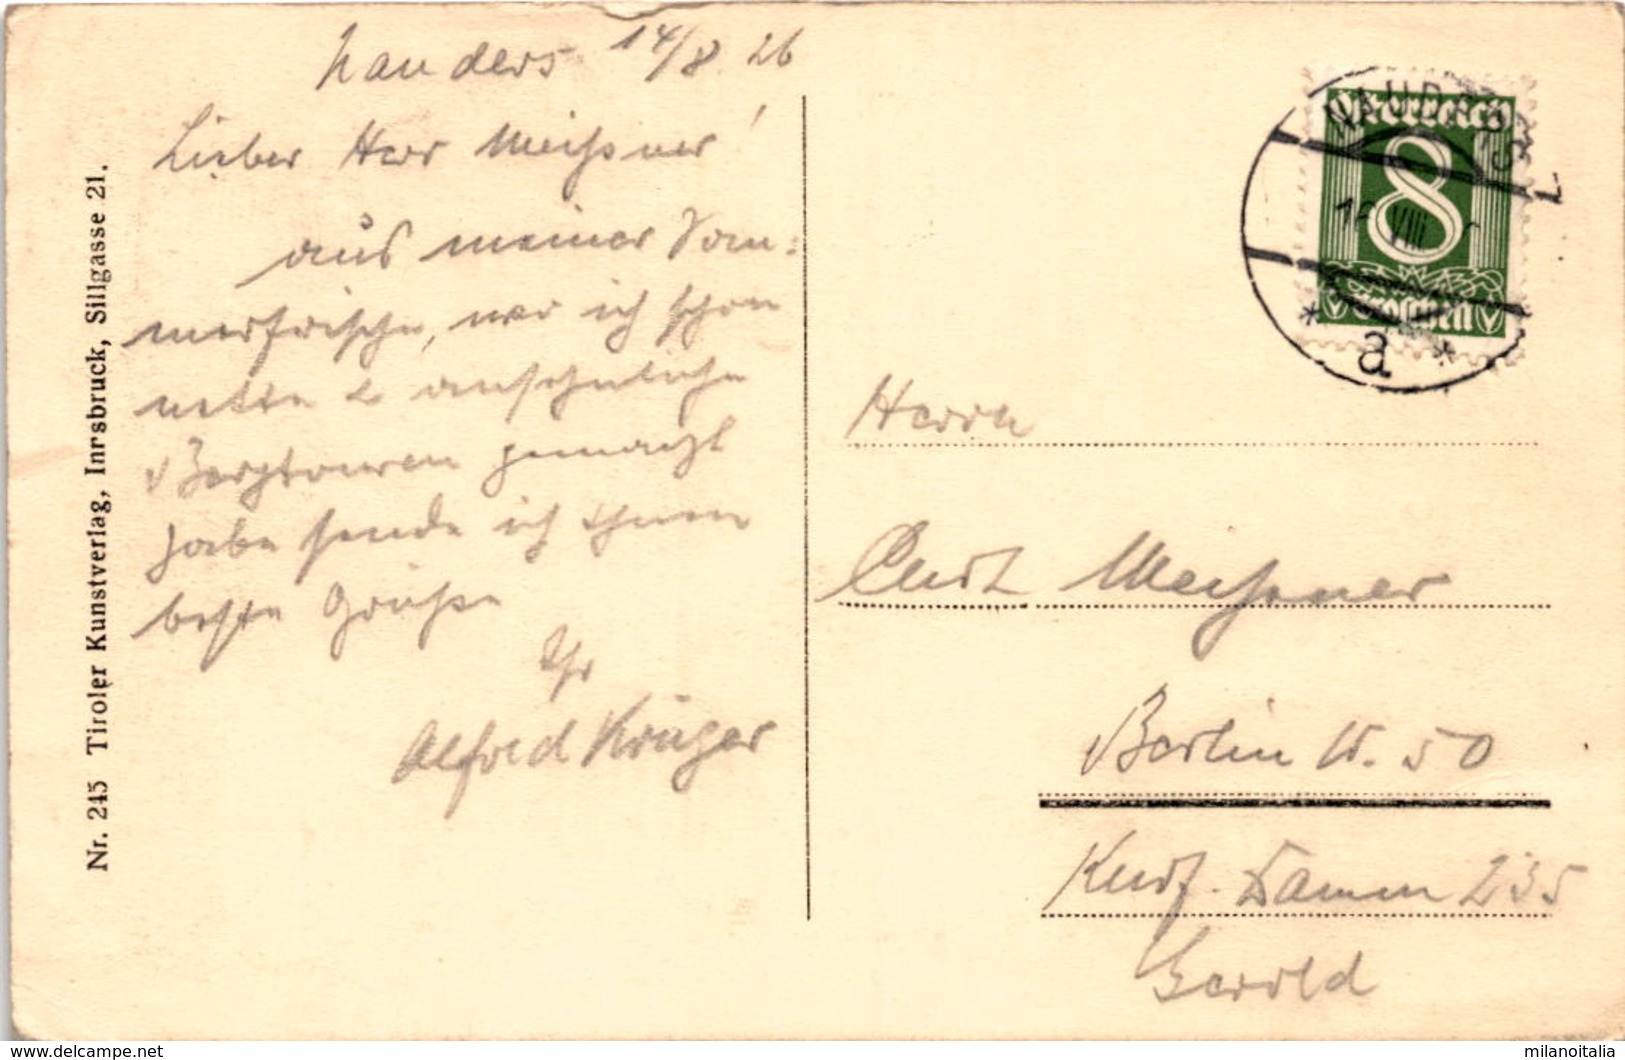 Nauders 14/8 26
Lieber Herr Meißner!
aus meiner Som=
merfrische, wo ich schon
nette & ansehnliche
Bergtouren gemacht
habe sende ich Ihnen
beste Grüße
Ihr
Alfred Krüger
Nr. 245 Tiroler Kunstverlag, Innsbruck, Sillgasse 21.
NAUDERS
VIII
* a *
Österreich
8
Groschen
Herrn
Curt Meißner
Berlin W. 50
Kurf. Damm 235
Gerold
https://www.delcampe.net
milanoitalia